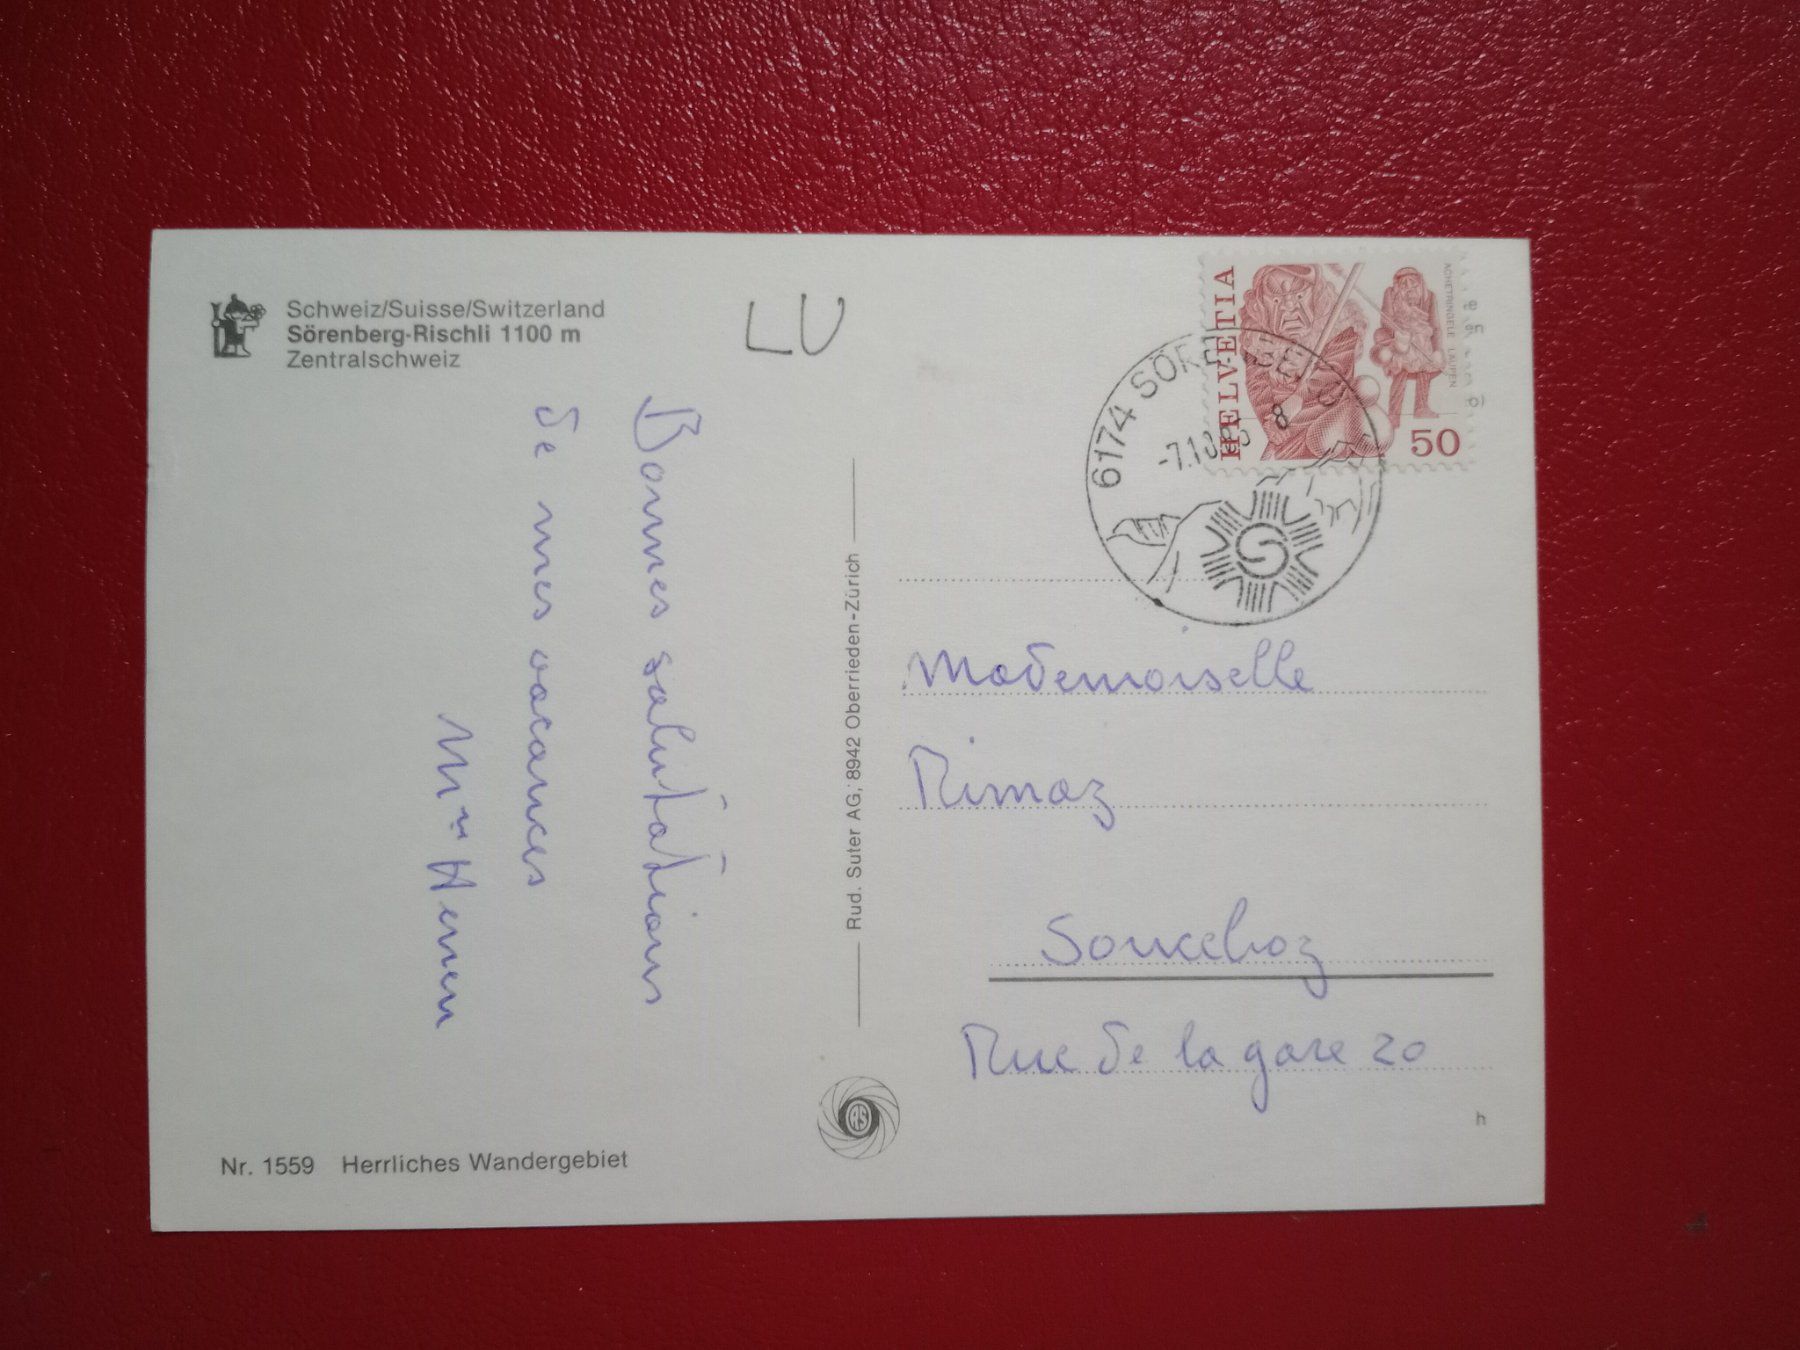 Schweiz/Suisse/Switzerland
Sörenberg-Rischli 1100 m
Zentralschweiz
LU
Bonnes salutations
de mes vacances
Nr. 1559 Herrliches Wandergebiet
Rud. Suter AG, 8942 Oberrieden-Zürich
RS
HELVETIA
ACHETRINGELE LAUPEN
50
6174 SÖRENBERG
-7.10.85 8
Mademoiselle
Rimaz
Sonceboz
Rue de la gare 20
h